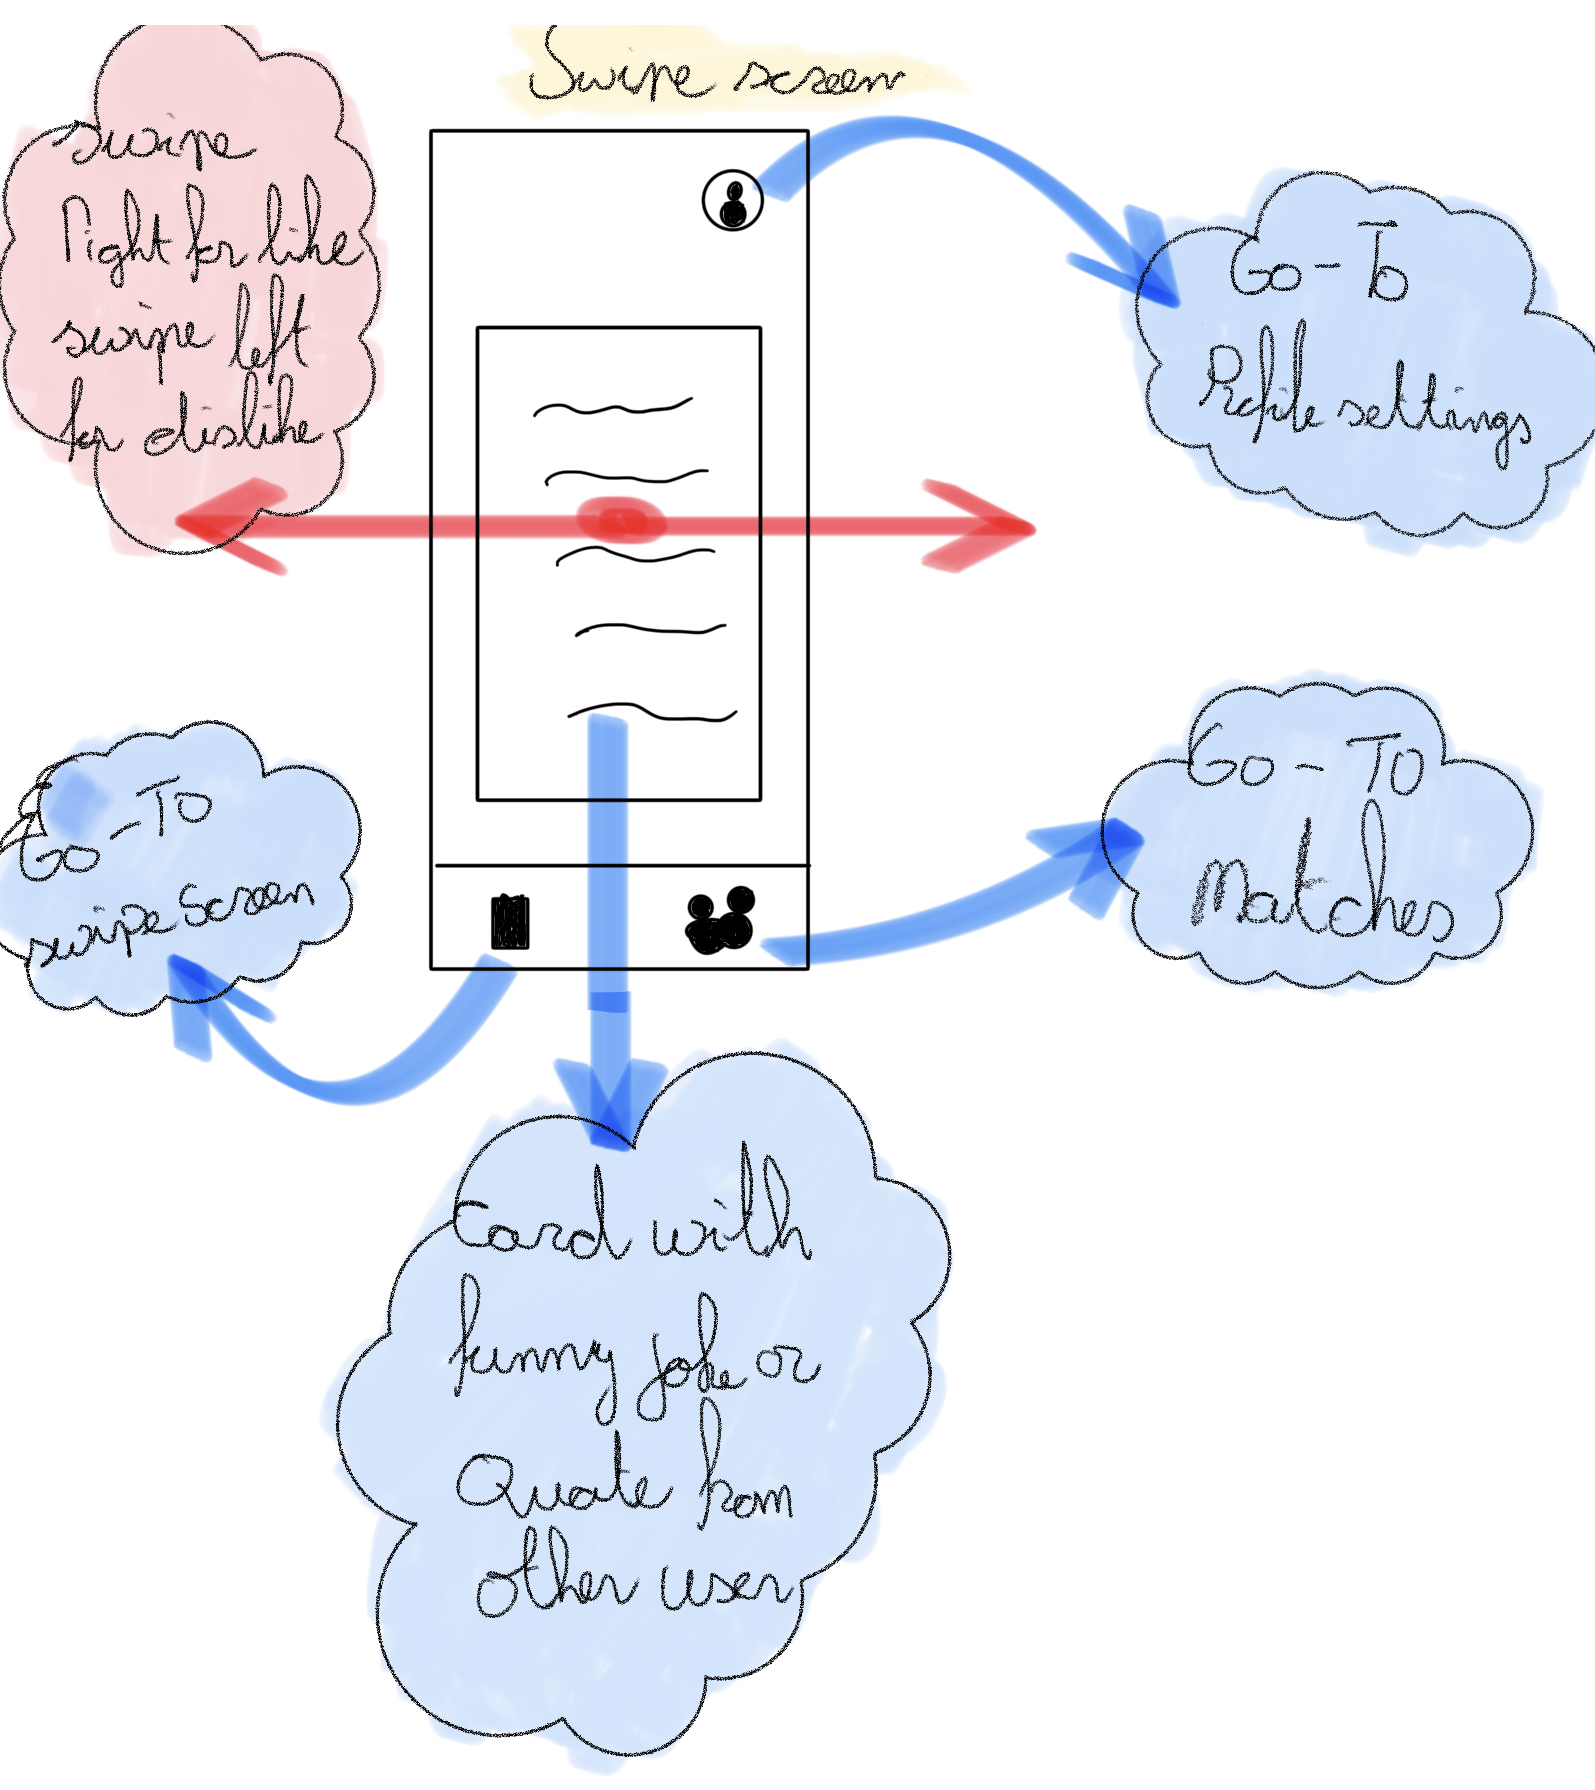 Swipe screen
swipe
right for like
swipe left
for dislike
Go-To
Profile settings
Go-To
swipe Screen
Go-To
Matches
Card with
funny joke or
Quote from
other user